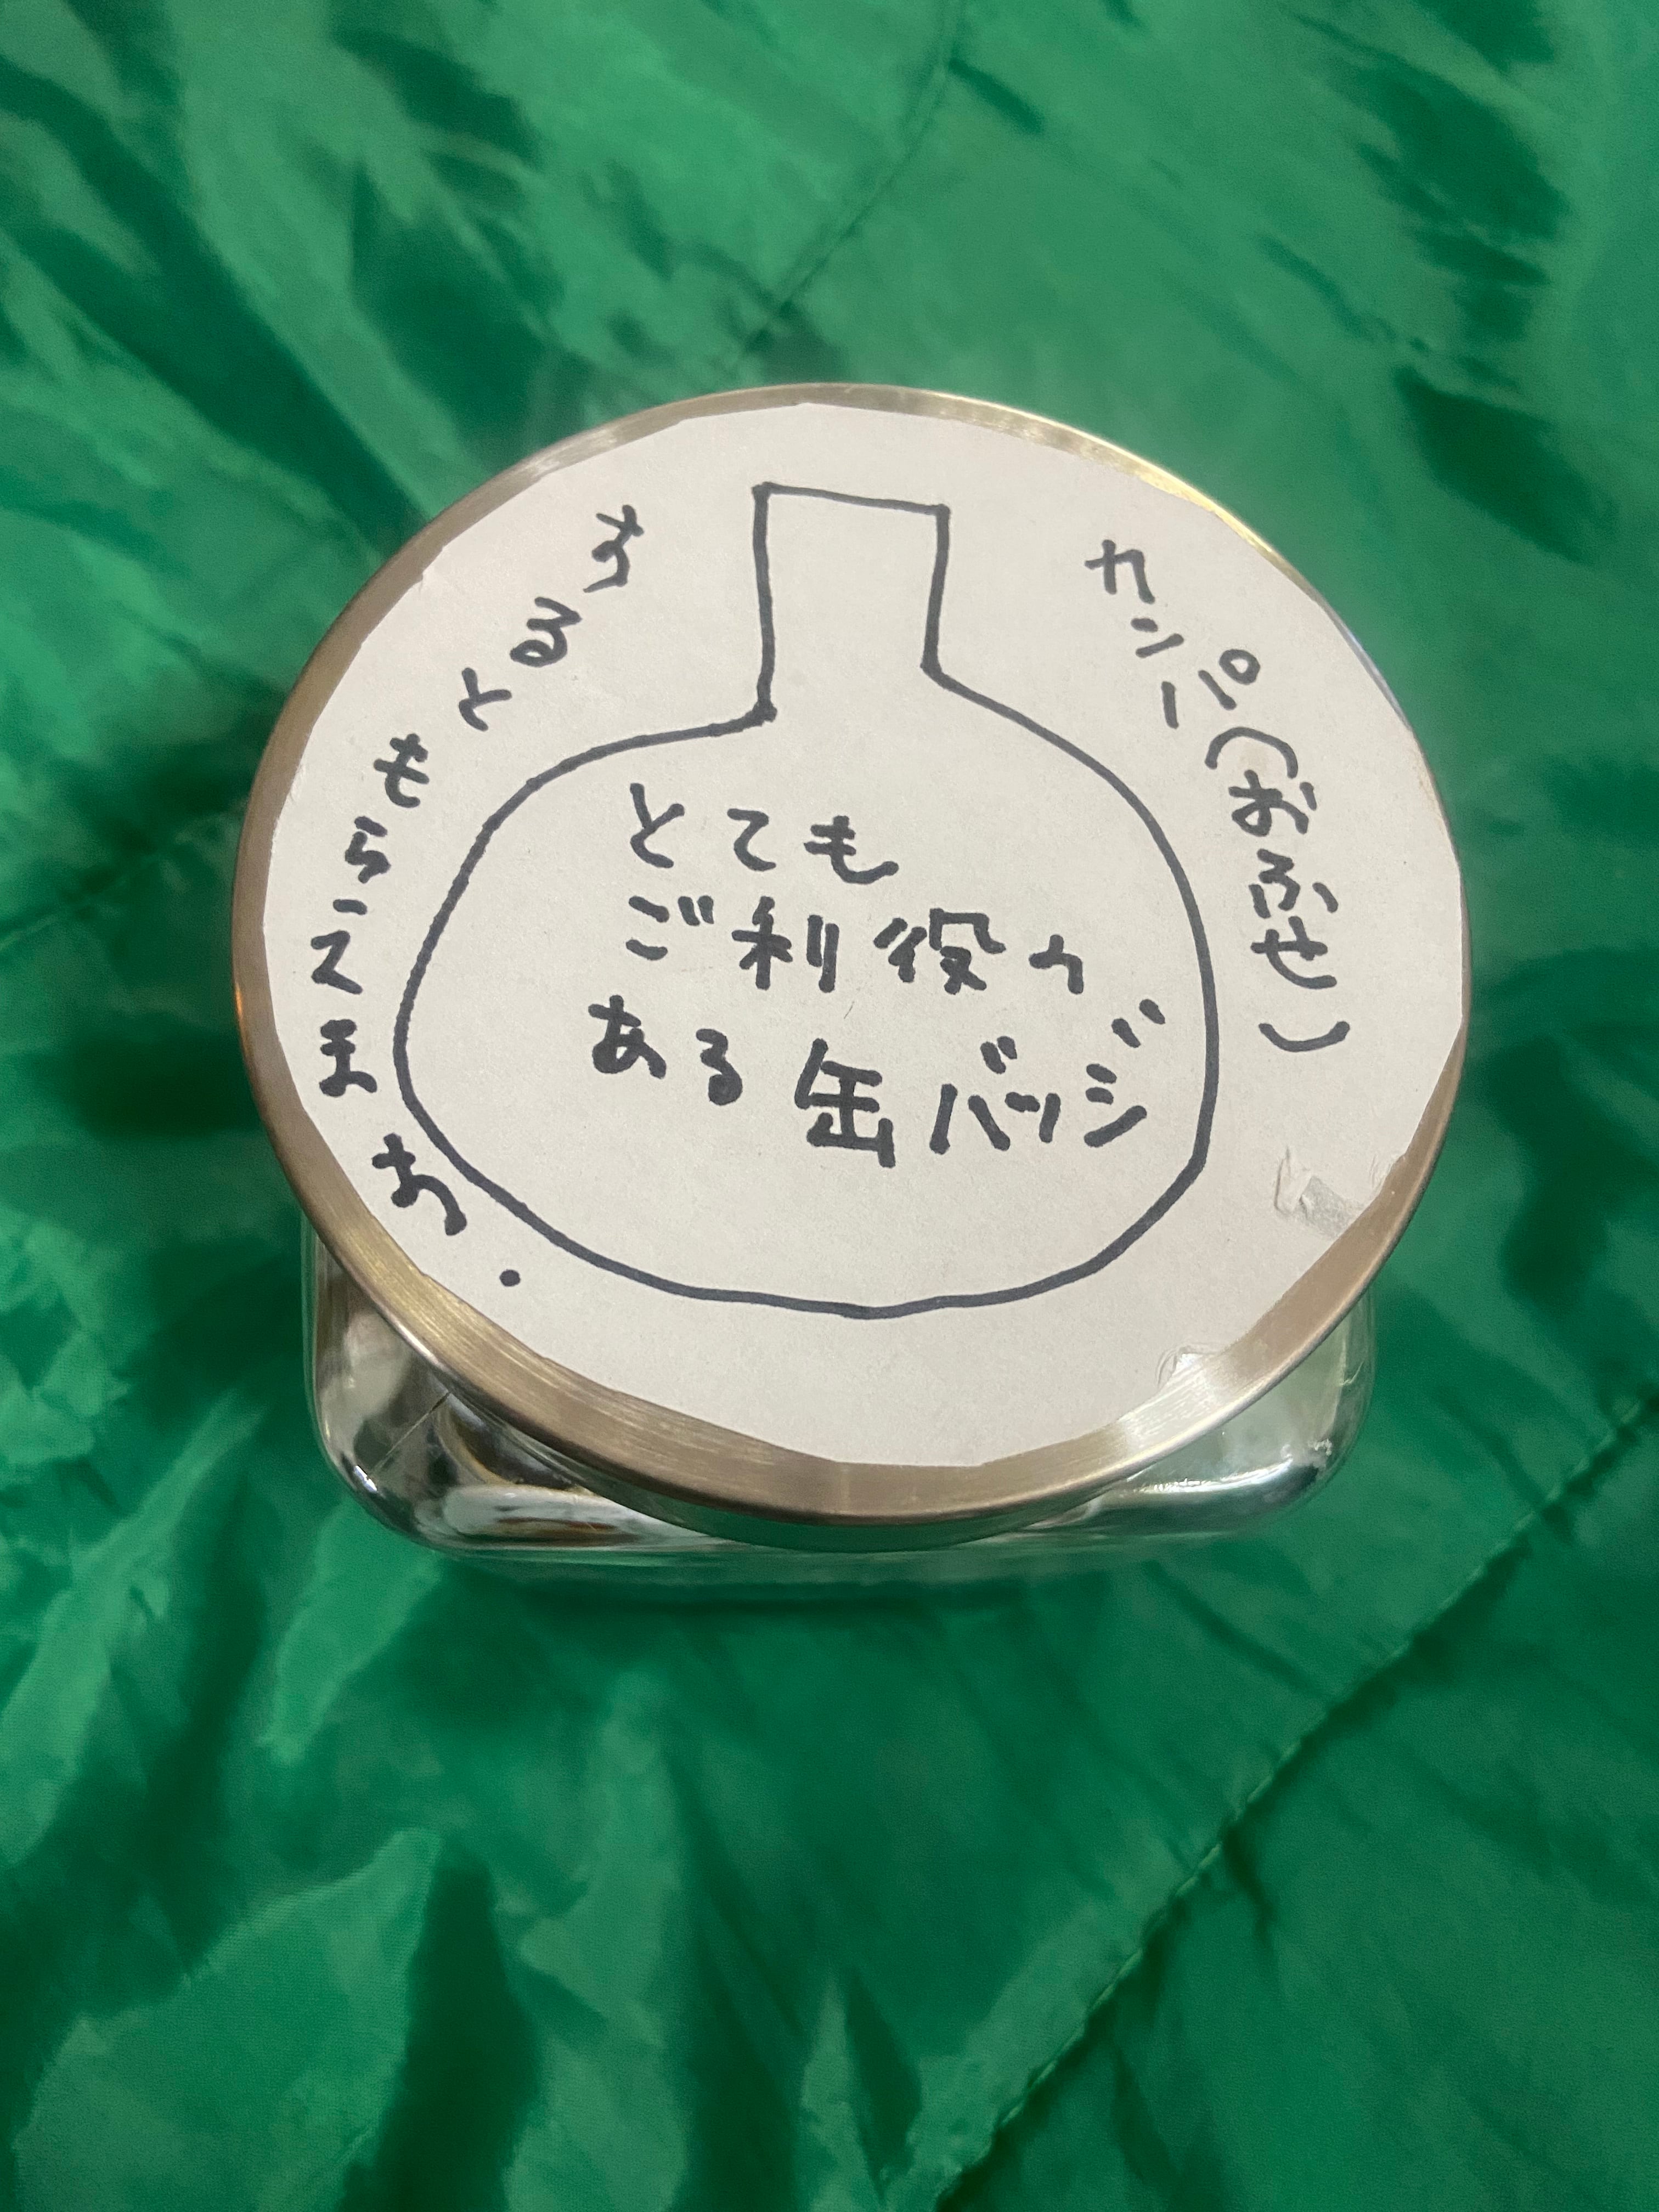 カンパ(おふせ)
すると
もらえます.
とても
ご利役が
ある缶バッジ